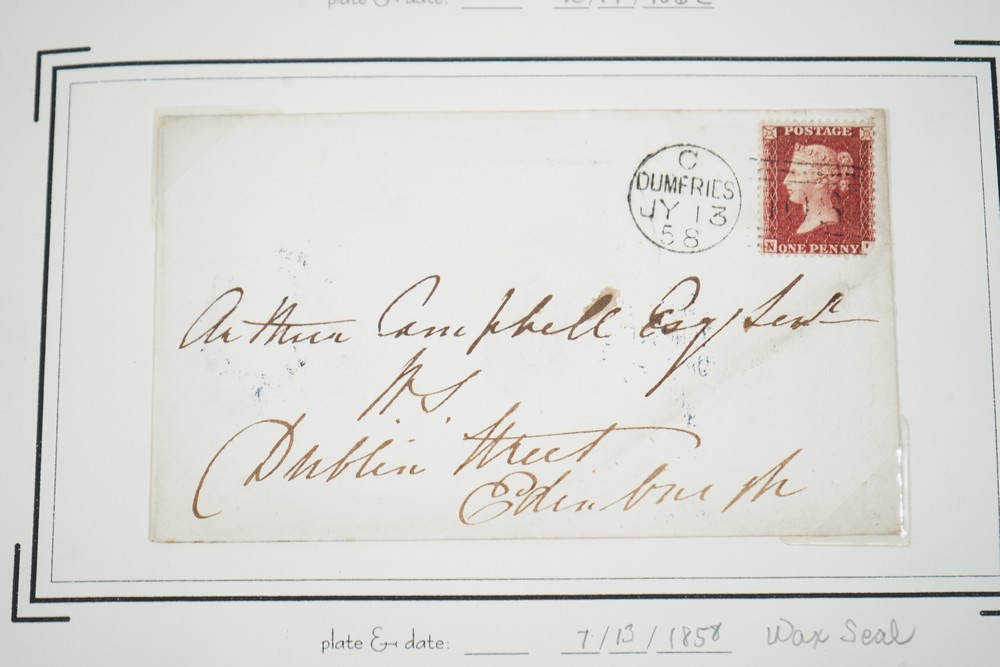 plate & date:
C
DUMFRIES
JY 13
58
POSTAGE
N ONE PENNY
Arthur Campbell Esq Senr
WS.
Dublin Street
Edinburgh
plate & date: 7/13/1858 Wax Seal